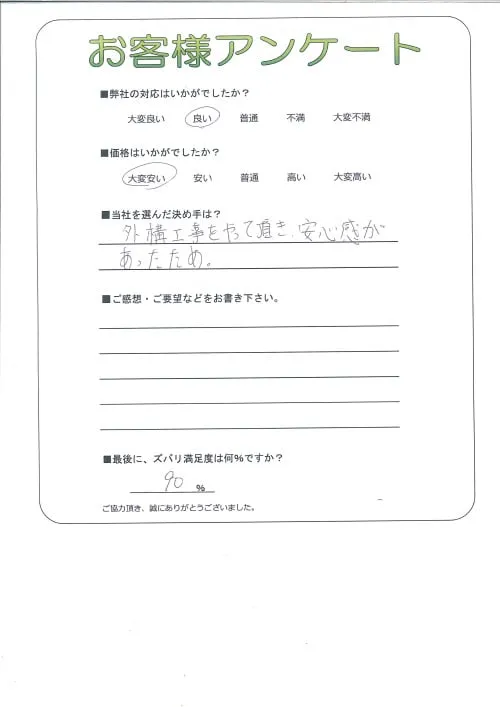 お客様アンケート
■弊社の対応はいかがでしたか？
大変良い 良い 普通 不満 大変不満
■価格はいかがでしたか？
大変安い 安い 普通 高い 大変高い
■当社を選んだ決め手は？
外構工事をやって頂き、安心感が
あったため。
■ご感想・ご要望などをお書き下さい。
■最後に、ズバリ満足度は何%ですか？
90 %
ご協力頂き、誠にありがとうございました。